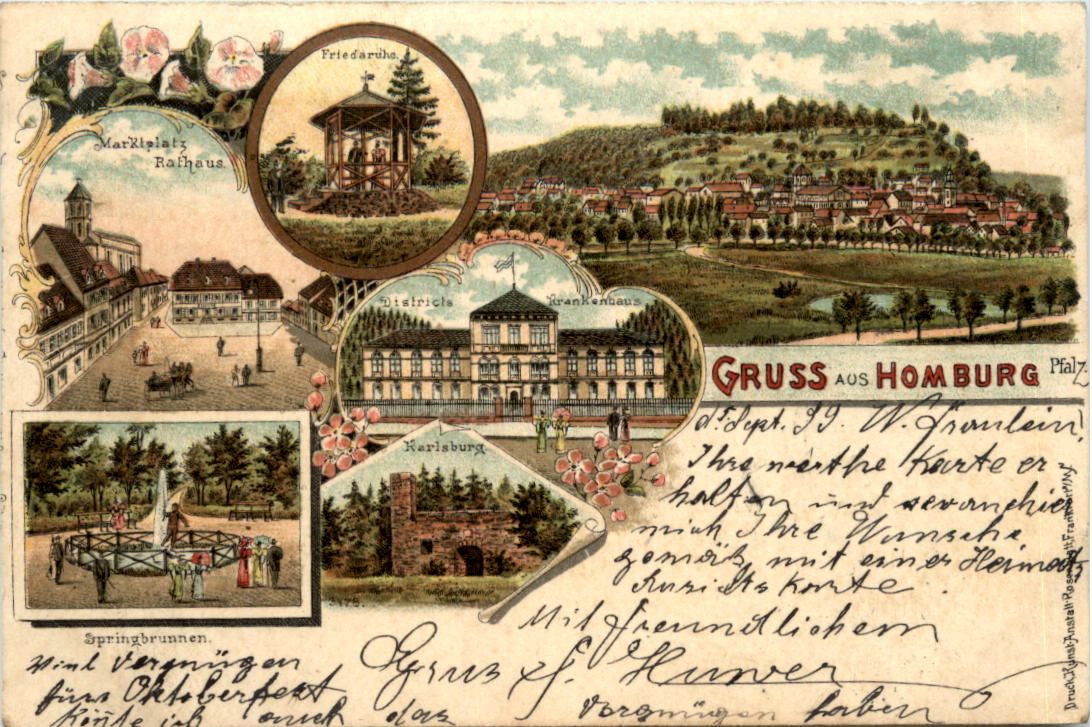 Friedaruhe.
Marktplatz
Rathaus.
Districts Krankenhaus
GRUSS AUS HOMBURG Pfalz
Karlsburg
Springbrunnen.
Sept. 99. W. Fräulein,
Ihre werthe Karte er
halten und revanchier
mich Ihre Wunsche
gemäß mit einer Heimats
Ansichtskarte.
Mit freundlichem
Gruß
Viel Vergnügen
fürs Oktoberfest
könnte ich auch das Vergnügen haben
Druck, Kunst-Anstalt Frankfurt a/M